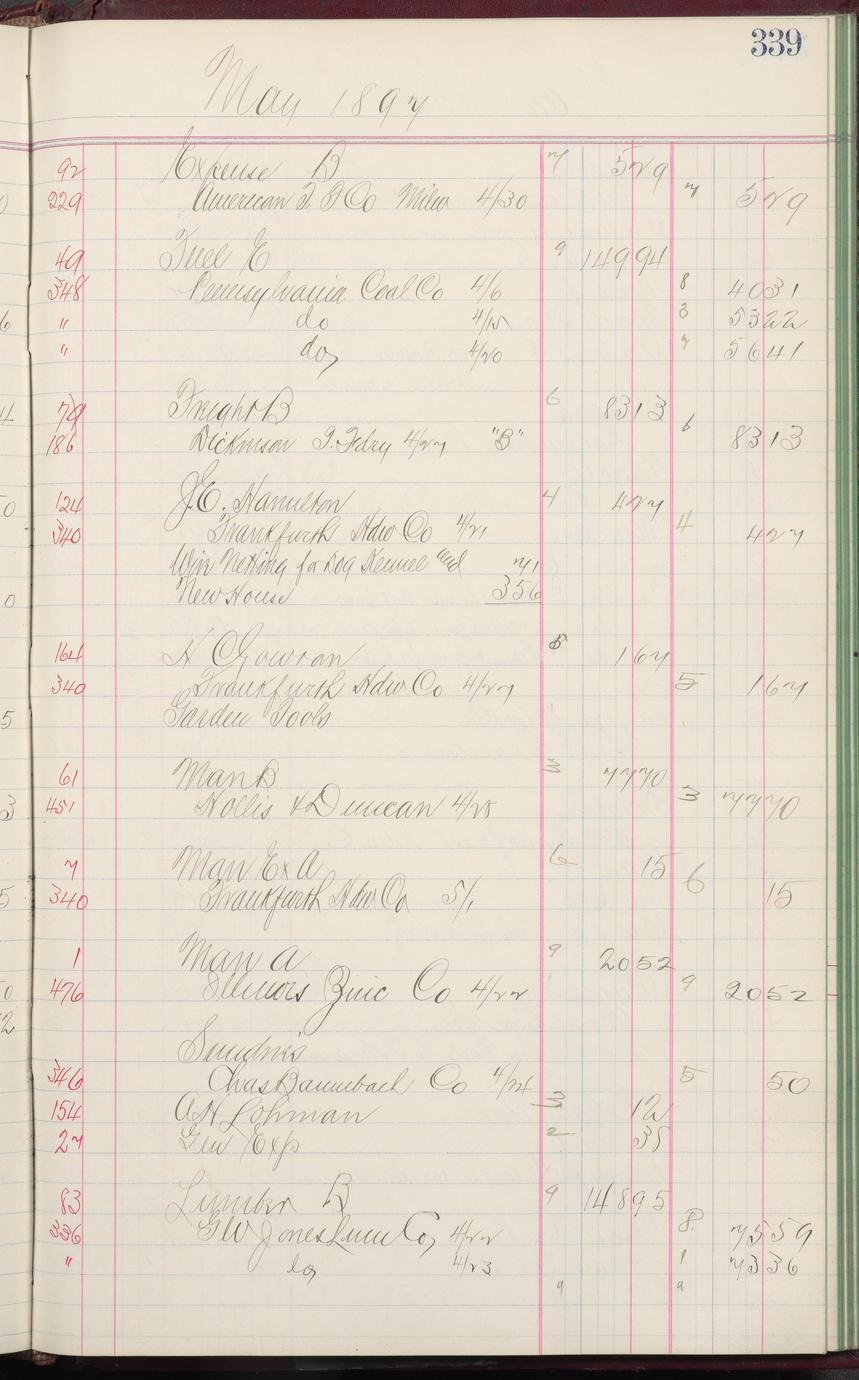 339
May 1897
92 Expense B 7 529
229 American T. F Co Milw 4/30 7 529
49 Fuel E 9 14994
348 Pennsylvania Coal Co 4/6 8 4031
" do 4/15 3 5322
" do 4/20 7 5641
79 Freight B 6 8313
186 Dickinson 4/27 "B" 6 8313
124 J.E. Hamilton 4 427
340 Frankfurth Hdw Co 4/21 4 427
Wire Netting for Dog Kennel and 71
New House 356
164 H Gowran 5 167
340 Frankfurth Hdw Co 4/27 5 167
Garden Tools
61 Man B 3 7770
451 Hollis & Duncan 4/25 3 7770
7 Man Ex A 6 15
340 Frankfurth Hdw Co 5/1 6 15
1 Man A 9 2052
476 Illinois Zinc Co 4/22 9 2052
Sundries
346 Chas Baumbach Co 4/24 5 50
154 A H Lohman 3 12
27 Gen Exp 2 38
83 Lumber B 9 14895
336 G W Jones Lum Co 4/22 8 7559
" do 4/23 1 7336
9 9